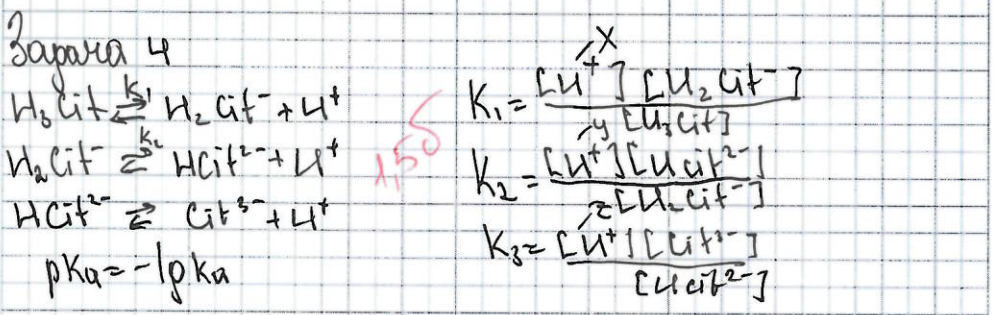 Задача 4
H₃Cit ⇄ H₂Cit⁻ + H⁺
K₁
H₂Cit⁻ ⇄ HCit²⁻ + H⁺
K₂
HCit²⁻ ⇄ Cit³⁻ + H⁺
pKa = -lg Ka
1,5б
x
K₁ = [H⁺][H₂Cit⁻] / [H₃Cit]
y
K₂ = [H⁺][HCit²⁻] / [H₂Cit⁻]
z
K₃ = [H⁺][Cit³⁻] / [HCit²⁻]